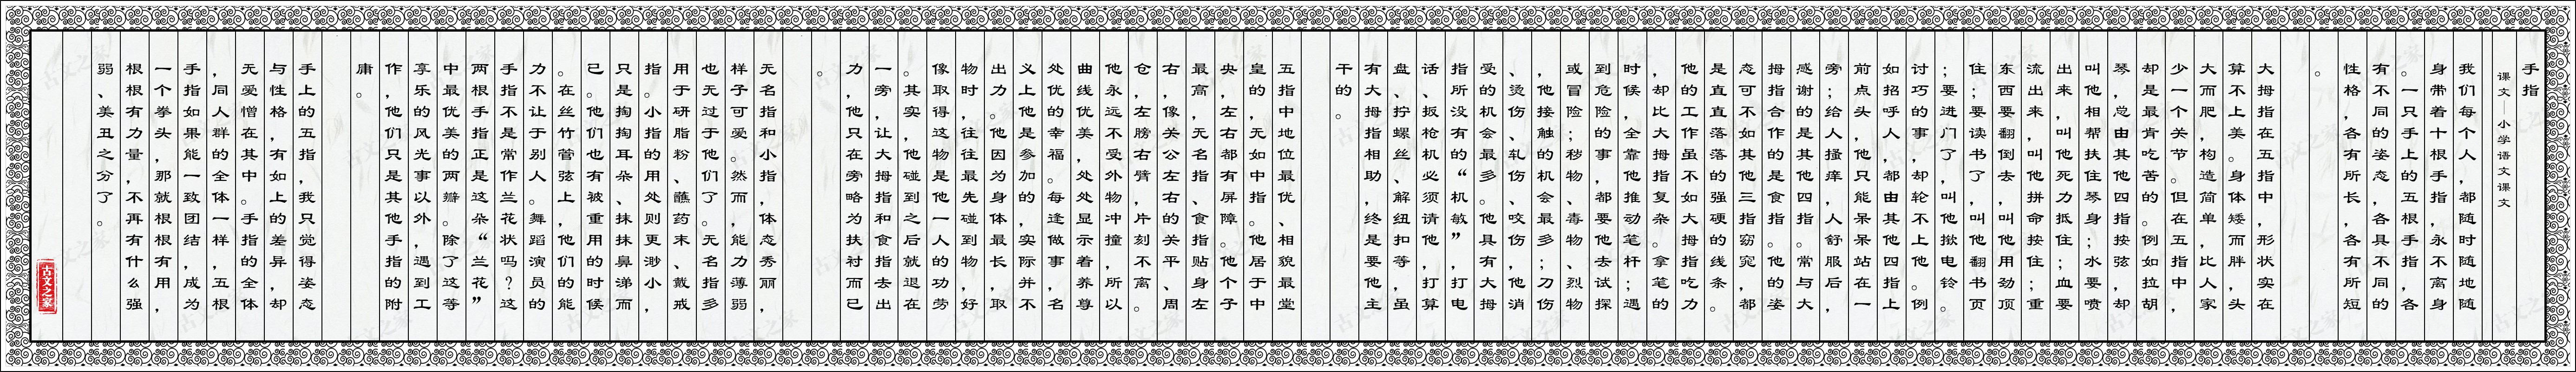 手指
课文—小学语文课文
我们每个人，都随时随地随
身带着十根手指，永不离身
。一只手上的五根手指，各
有不同的姿态，各具不同的
性格，各有所长，各有所短
。
大拇指在五指中，形状实在
算不上美。身体矮而胖，头
大而肥，构造简单，比人家
少一个关节。但在五指中，
却是最肯吃苦的。例如拉胡
琴，总由其他四指按弦，却
叫他相帮扶住琴身；水要喷
出来，叫他死力抵住；血要
流出来，叫他拼命按住；重
东西要翻倒去，叫他用劲顶
住；要读书了，叫他翻书页
；要进门了，叫他揿电铃。
讨巧的事，却轮不上他。例
如招呼人，都由其他四指上
前点头，他只能呆呆站在一
旁；给人搔痒，人舒服后，
感谢的是其他四指。常与大
拇指合作的是食指。他的姿
态可不如其他三指窈窕，都
是直直落落的强硬的线条。
他的工作虽不如大拇指吃力
，却比大拇指复杂。拿笔的
时候，全靠他推动笔杆；遇
到危险的事，都要他去试探
或冒险；秽物、毒物、烈物
，他接触的机会最多；刀伤
、烫伤、轧伤、咬伤，他消
受的机会最多。他具有大拇
指所没有的“机敏”，打电
话、扳枪机必须请他，打算
盘、拧螺丝、解纽扣等，虽
有大拇指相助，终是要他主
干的。
五指中地位最优、相貌最堂
皇的，无如中指。他居于中
央，左右都有屏障。他个子
最高，无名指、食指贴身左
右，像关公左右的关平、周
仓，左膀右臂，片刻不离。
他永远不受外物冲撞，所以
曲线优美，处处显示着养尊
处优的幸福。每逢做事，名
义上他是参加的，实际并不
出力。他因为身体最长，取
物时，往往最先碰到物，好
像取得这物是他一人的功劳
。其实，他碰到之后就退在
一旁，让大拇指和食指去出
力，他只在旁略为扶衬而已
。
无名指和小指，体态秀丽，
样子可爱。然而，能力薄弱
也无过于他们了。无名指多
用于研脂粉、蘸药末、戴戒
指。小指的用处则更渺小，
只是掏掏耳朵、抹抹鼻涕而
已。他们也有被重用的时候
。在丝竹管弦上，他们的能
力不让于别人。舞蹈演员的
手指不是常作兰花状吗？这
两根手指正是这朵“兰花”
中最优美的两瓣。除了这等
享乐的风光事以外，遇到工
作，他们只是其他手指的附
庸。
手上的五指，我只觉得姿态
与性格，有如上的差异，却
无爱憎在其中。手指的全体
，同人群的全体一样，五根
手指如果能一致团结，成为
一个拳头，那就根根有用，
根根有力量，不再有什么强
弱、美丑之分了。
古文之家